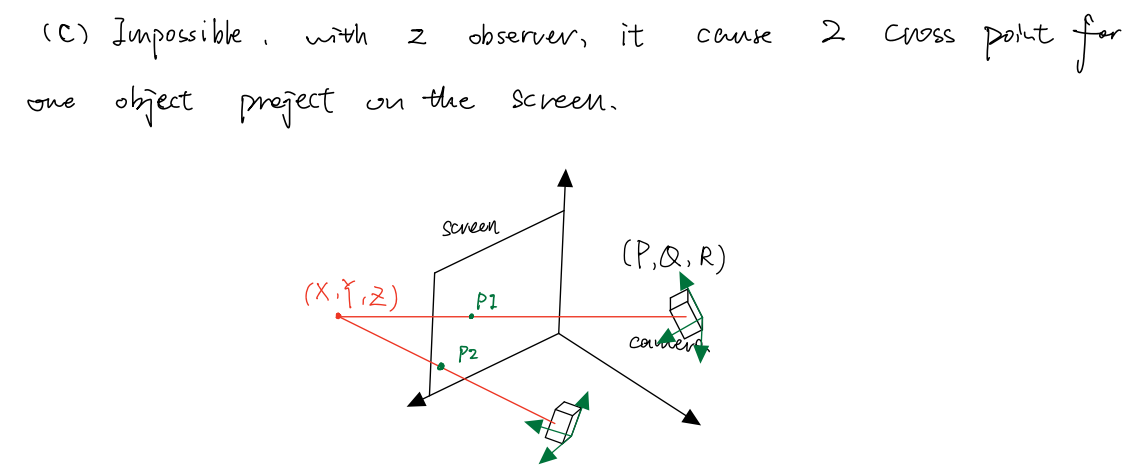 (C) Impossible. with 2 observer, it cause 2 cross point for
one object project on the screen.
screen
(P,Q,R)
(X,Y,Z)
P1
camera
P2